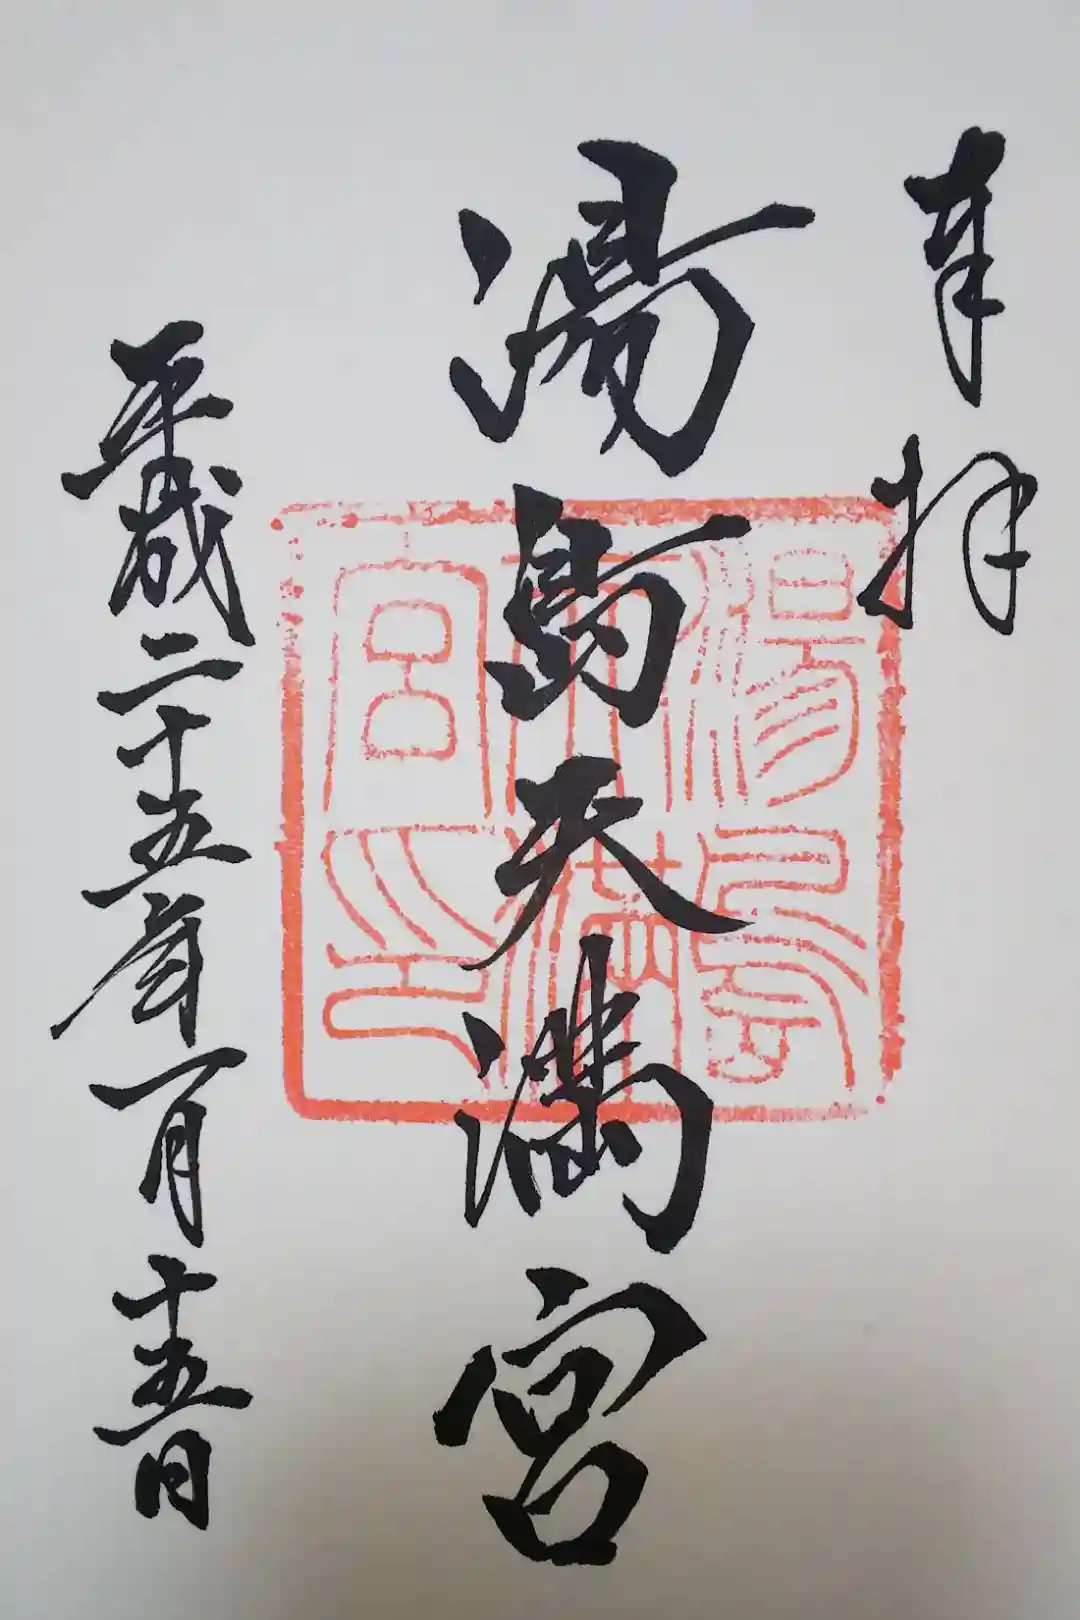 奉拝
湯島天満宮
平成二十五年一月十五日
湯島天満宮印